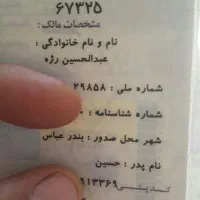 ۶۷۳۲۵
مشخصات مالک :
نام و نام خانوادگی :
عبدالحسین رژه
شماره ملی : ۲۹۸۵۸
شماره شناسنامه : ۰
شهر محل صدور : بندر عباس
نام پدر : حسین
کد پستی : ۹۱۳۳۶۹